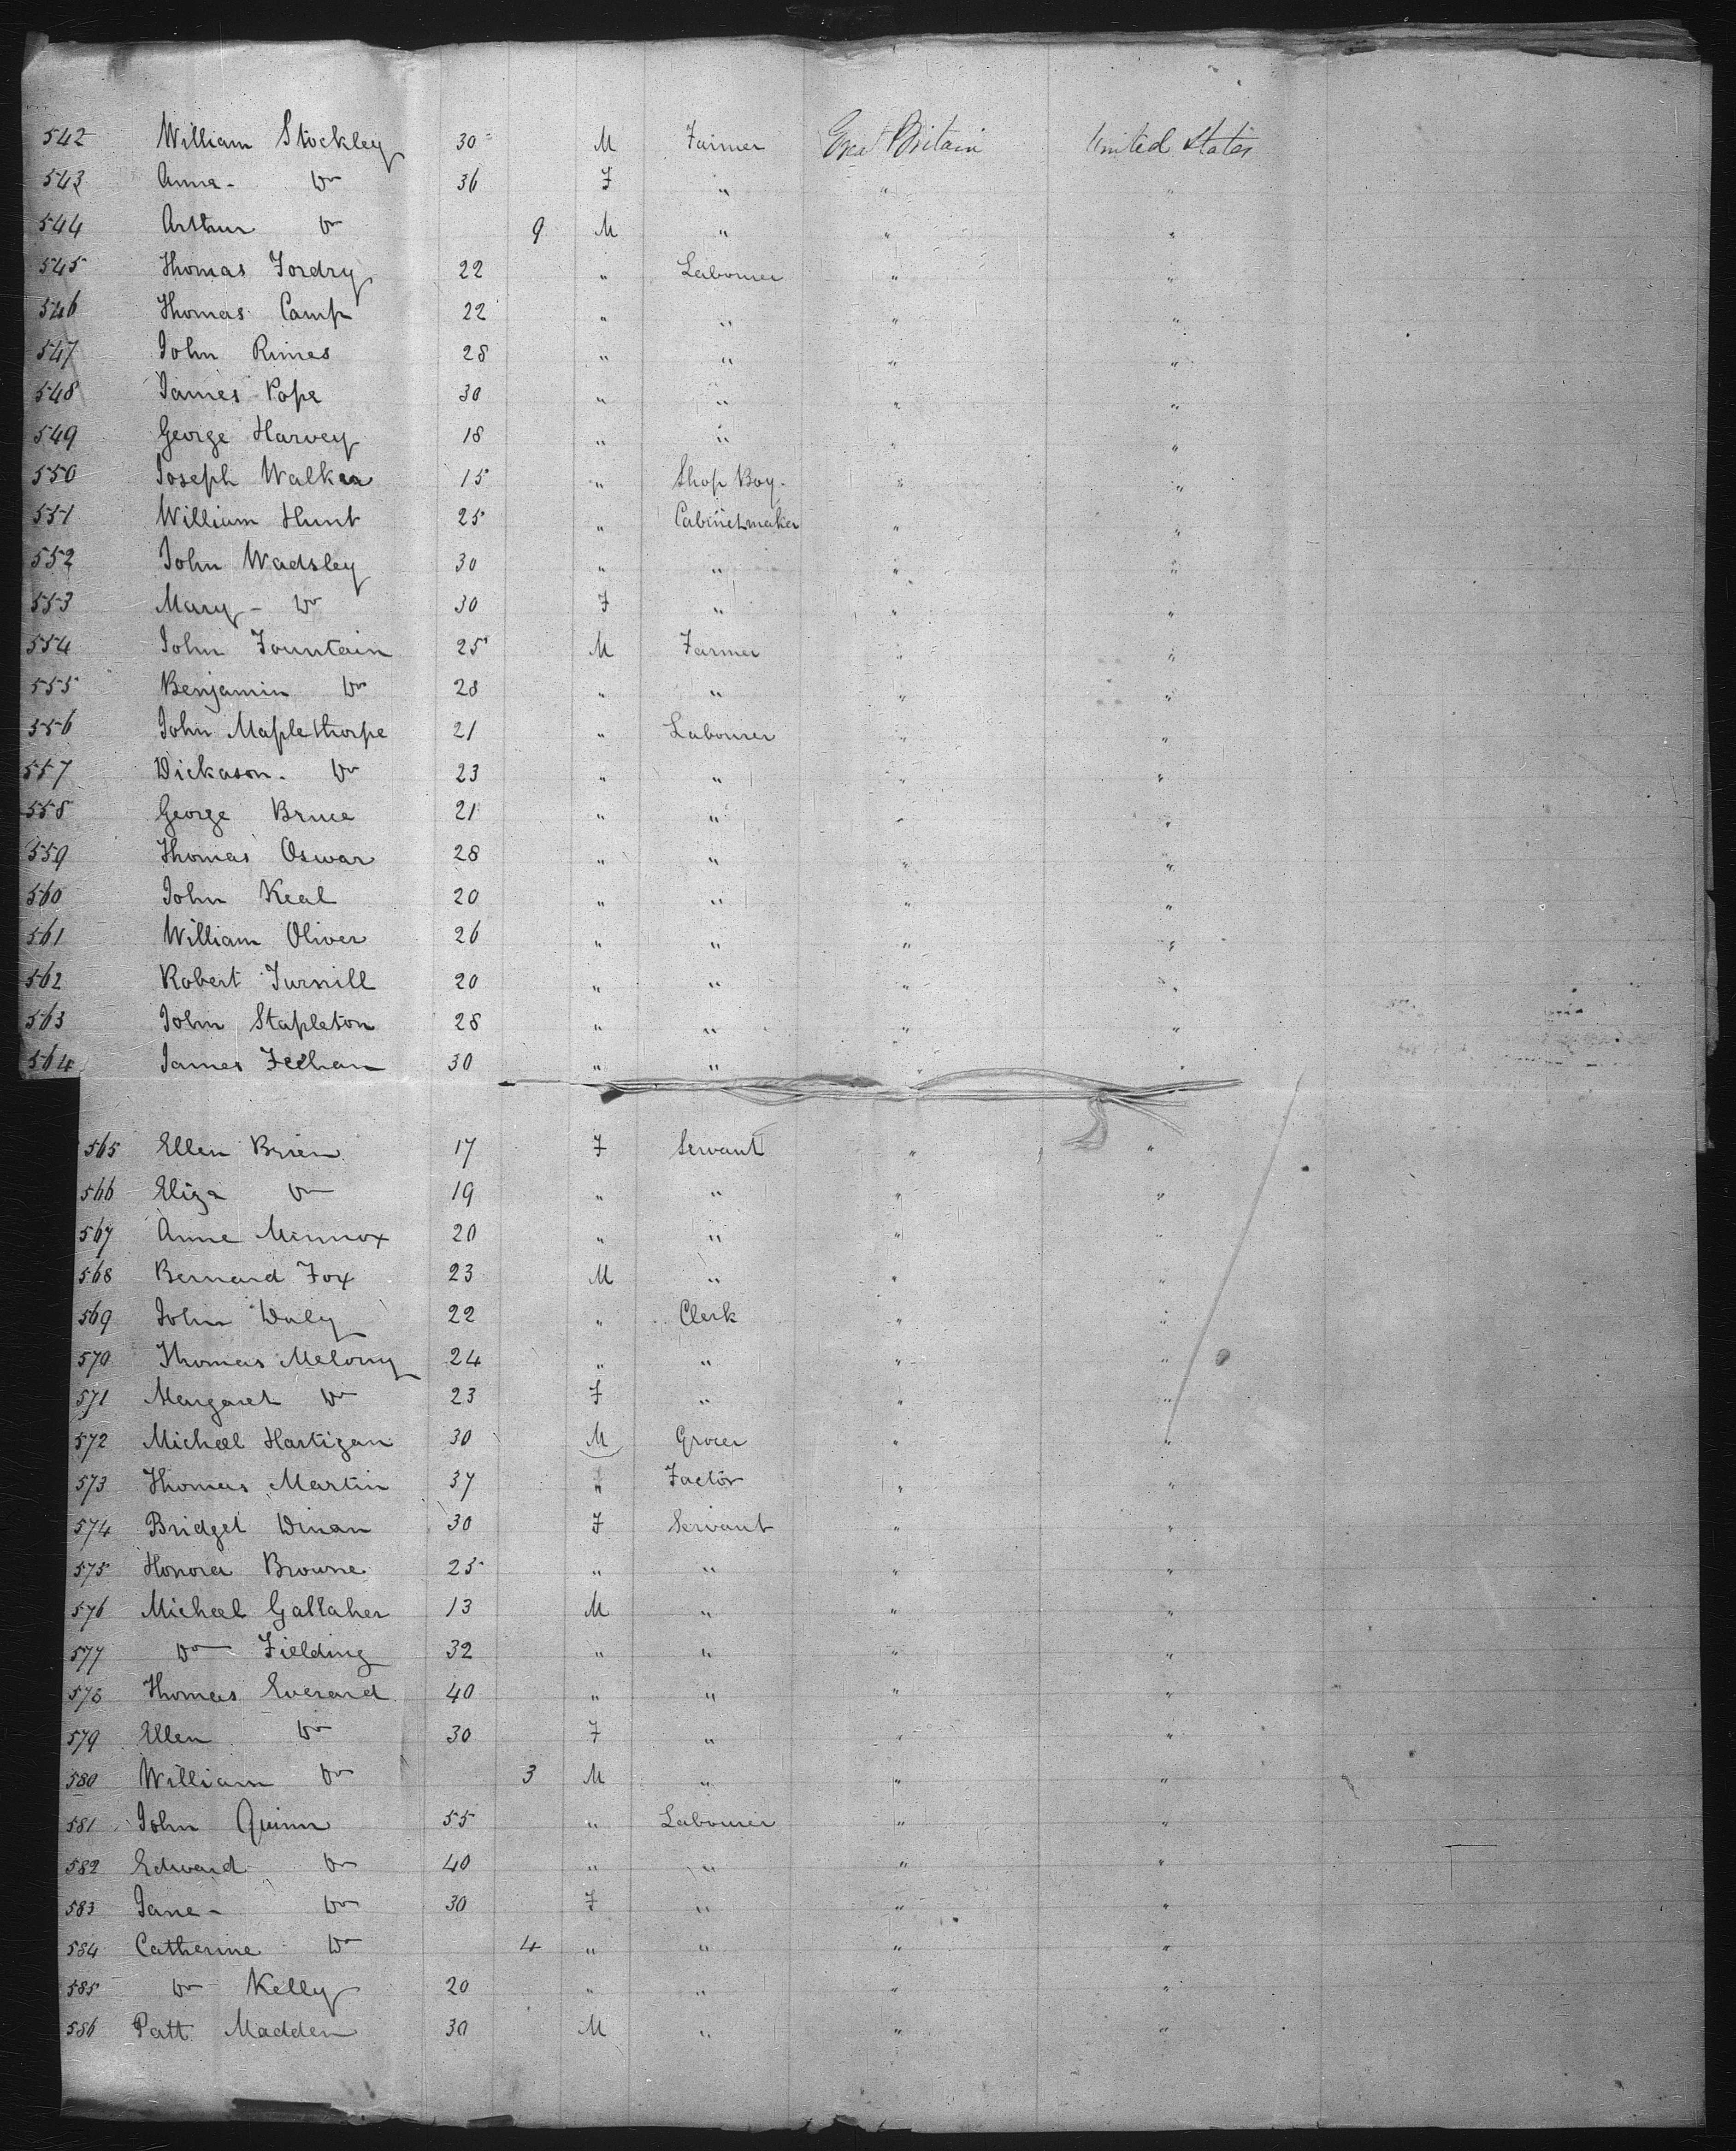 542 William Stockley 30 M Farmer Great Britain United States
543 Anna - Do 36 F " " "
544 Arthur Do 9 M " " "
545 Thomas Fordry 22 " Labourer " "
546 Thomas Camp 22 " " " "
547 John Rimes 28 " " " "
548 James Pope 30 " " " "
549 George Harvey 18 " " " "
550 Joseph Walker 15 " Shop Boy " "
551 William Hunt 25 " Cabinetmaker " "
552 John Wadsley 30 " " " "
553 Mary - Do 30 F " " "
554 John Fountain 25 M Farmer " "
555 Benjamin Do 28 " " " "
556 John Maplethorpe 21 " Labourer " "
557 Dickason. Do 23 " " " "
558 George Bruce 21 " " " "
559 Thomas Oswar 28 " " " "
560 John Keal 20 " " " "
561 William Oliver 26 " " " "
562 Robert Turnill 20 " " " "
563 John Stapleton 28 " " " "
564 James Feehan 30 " " " "
565 Ellen Brien 17 F Servant " "
566 Eliza Do 19 " " " "
567 Anne Minnox 20 " " " "
568 Bernard Fox 23 M " " "
569 John Daly 22 " Clerk " "
570 Thomas Melony 24 " " " "
571 Margaret Do 23 F " " "
572 Michael Hartigan 30 M Grocer " "
573 Thomas Martin 37 " Factor " "
574 Bridget Dinan 30 F Servant " "
575 Honora Browne 25 " " " "
576 Michael Gallaher 13 M " " "
577 Do Fielding 32 " " " "
578 Thomas Everard 40 " " " "
579 Ellen Do 30 F " " "
580 William Do 3 M " " "
581 John Quinn 55 " Labourer " "
582 Edward Do 40 " " " "
583 Jane - Do 30 F " " "
584 Catherine Do 4 " " " "
585 Do Kelly 20 " " " "
586 Patt Madden 30 M " " "